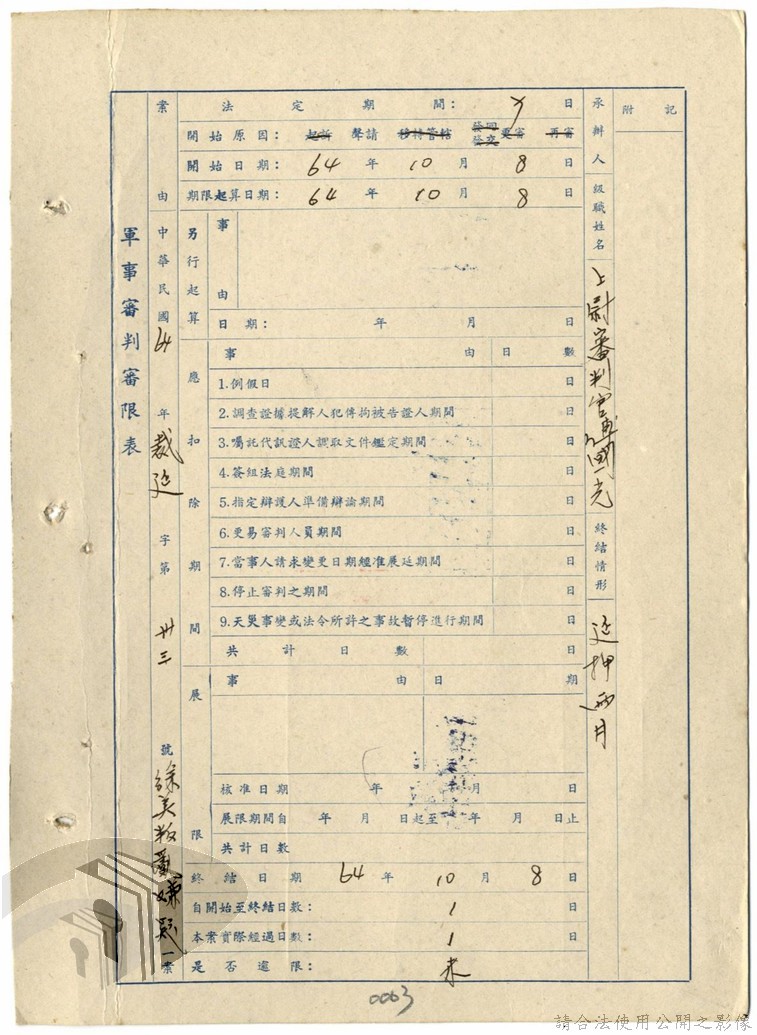 軍事審判審限表
案由 中華民國64年裁延字第卅三號徐美叛亂嫌疑一案
法定期間: 日
開始原因: 起訴 聲請 移轉管轄 發回 發交 更審 再審
開始日期: 64年10月8日
期限起算日期: 64年10月8日
另行起算
事由
日期: 年 月 日
應扣除期間
事由 日數
1.例假日 日
2.調查證據提解人犯傳拘被告證人期間 日
3.囑託代訊證人調取文件鑑定期間 日
4.簽組法庭期間 日
5.指定辯護人準備辯論期間 日
6.更易審判人員期間 日
7.當事人請求變更日期經准展延期間 日
8.停止審判之期間 日
9.天災事變或法令所許之事故暫停進行期間 日
共計日數 日
展限
事由 日期
核准日期 年 月 日
展限期間自 年 月 日起至 年 月 日止
共計日數
終結日期 64年10月8日
自開始至終結日數: 1日
本案實際經過日數: 1日
是否逾限: 未
承辦人級職姓名 上尉審判官 國光
終結情形 延押兩月
附記
0063
請合法使用公開之影像